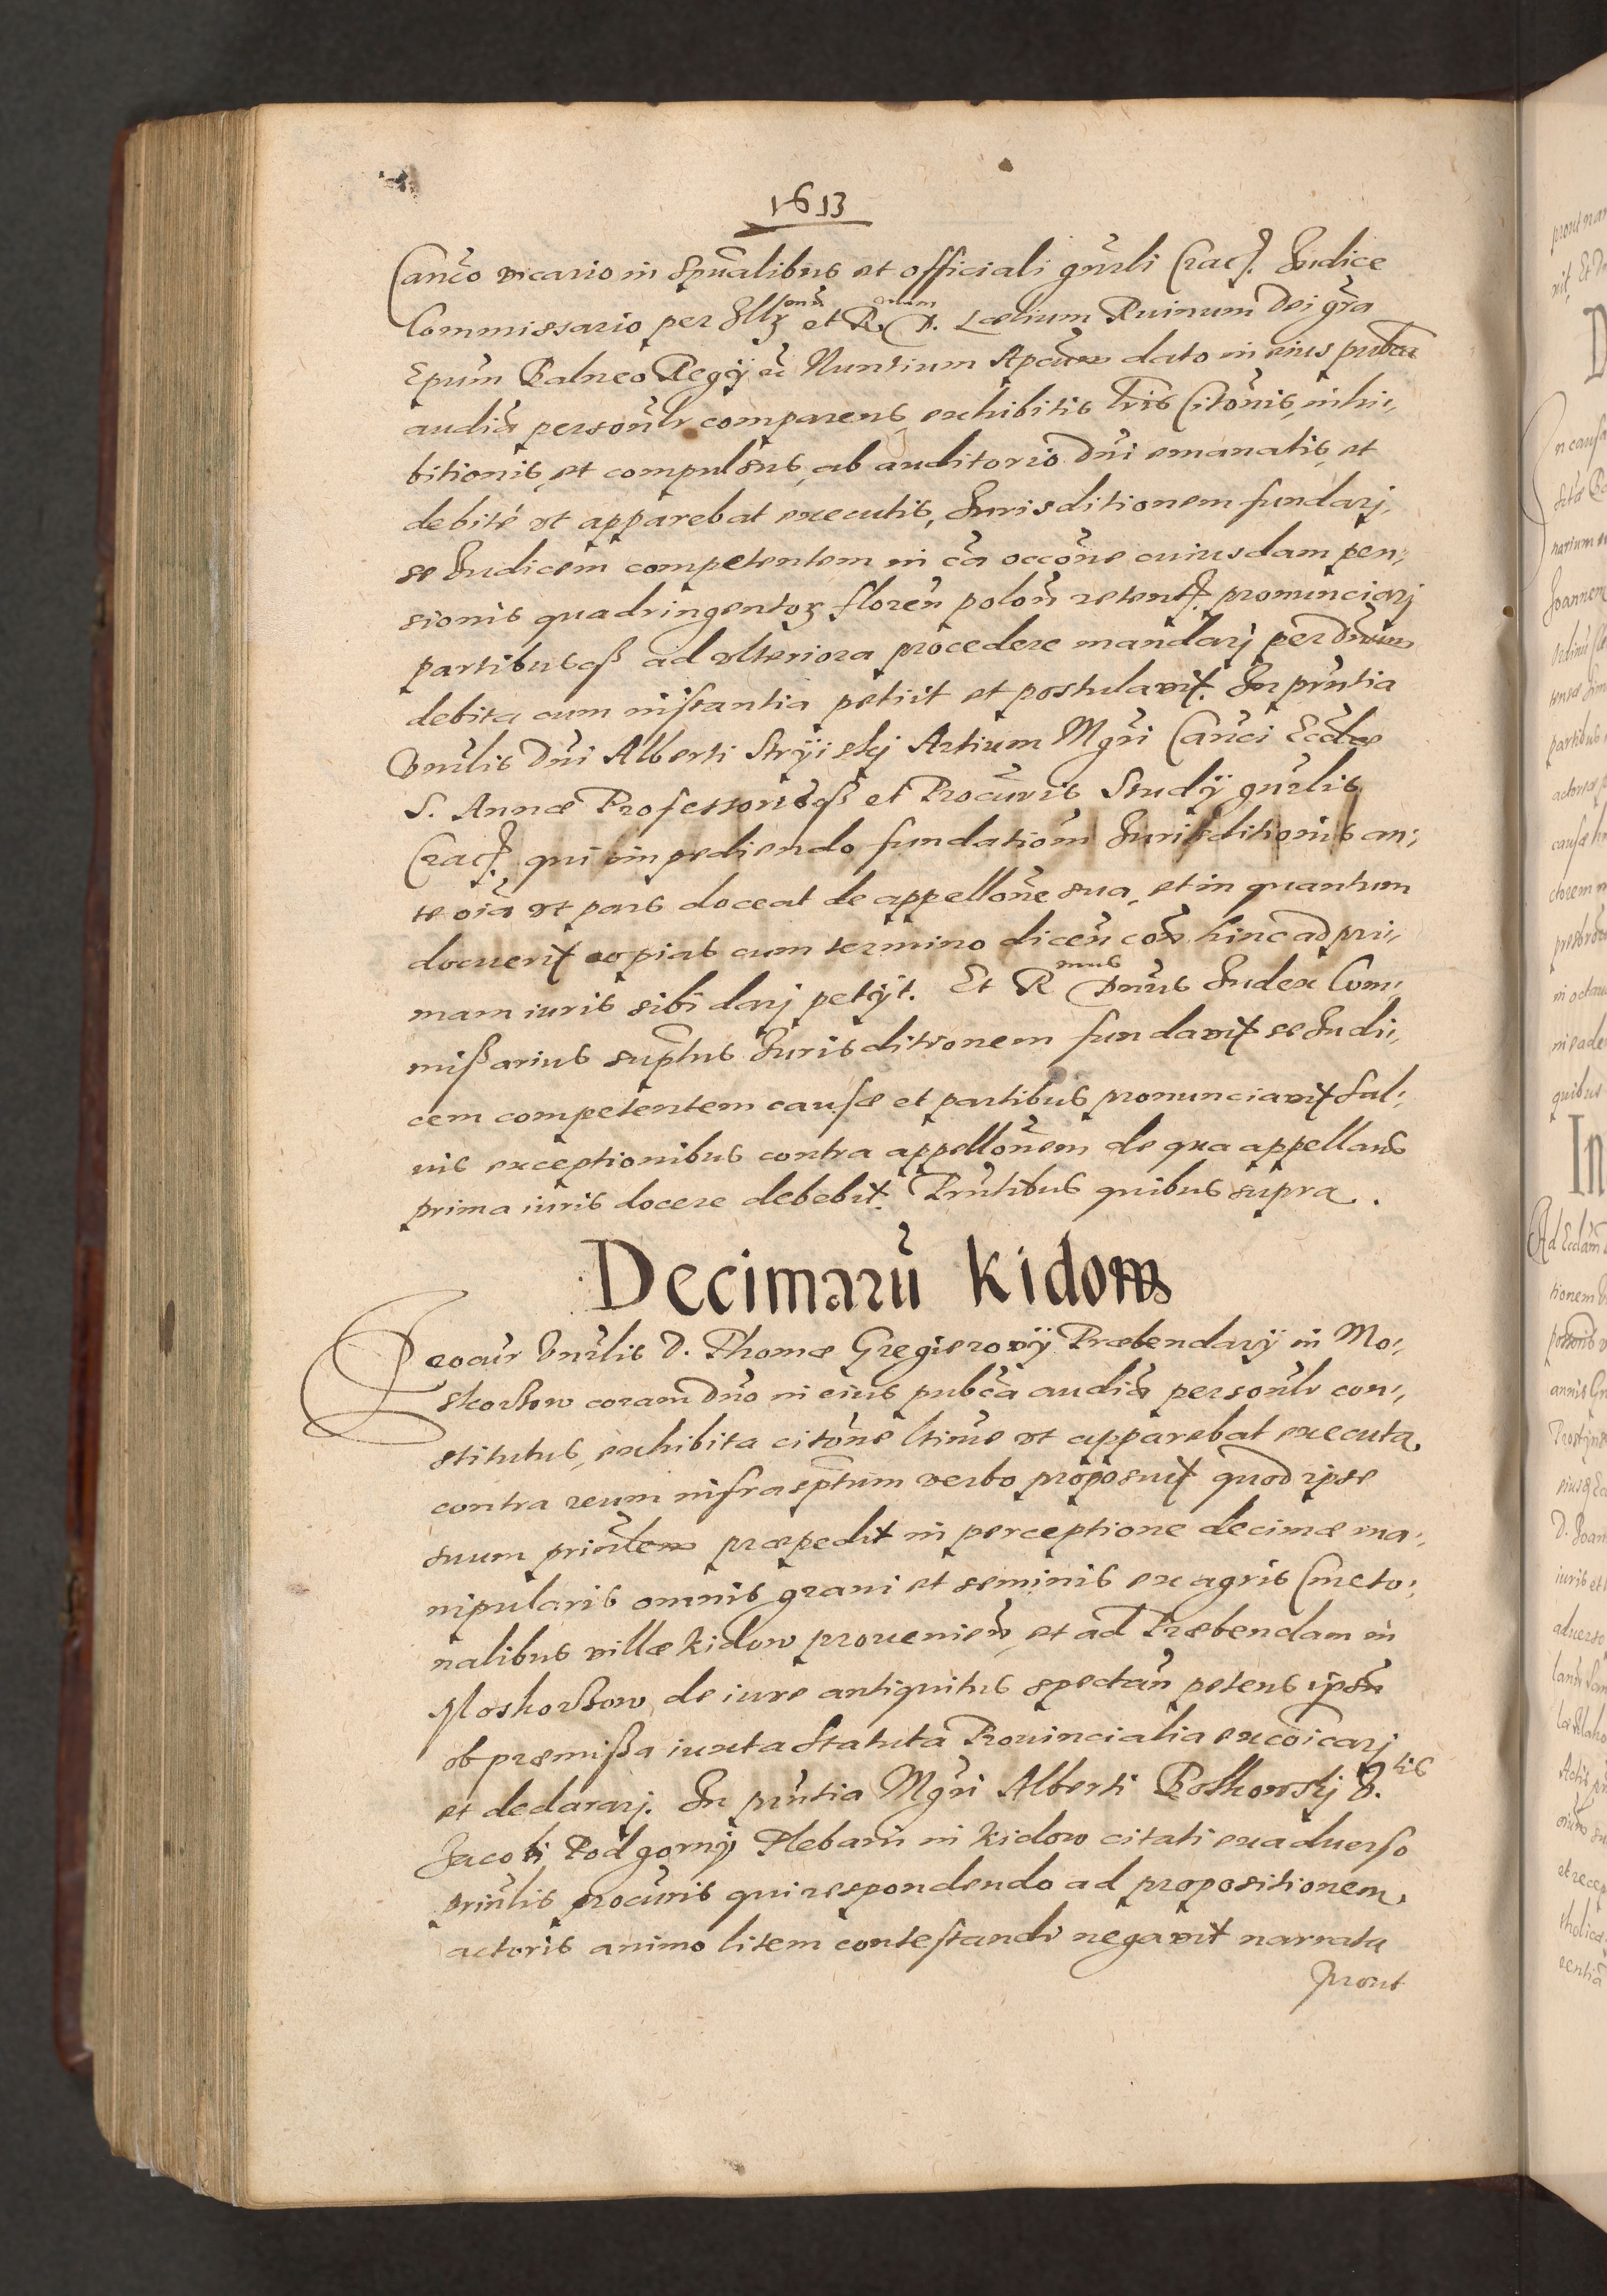 1613
Canco vicario in Spualibus et officiali gnrli Crac. Judice
Commissario per Illr et R D. Lælium Ruinum Dei gra
Epum Balneo Regÿ ac Nuntium Apcum dato in eius pubca
audia personlr comparens, exhibitis lris Citonis, inhi,,
bitionis, et compulsus, ab auditorio Dni emanatis, et
debité vt apparebat executis, Jurisditionem fundarj,
se Judicem competentem in ca occone cuiusdam pen,
sionis quadringentor floren polon retent. pronunciarj
partibusq ad vlteriora procedere mandarj per Dnum
debita cum instantia petiit et postulavit. In pntia
Vnrlis Dni Alberti Stryiskj Artium Mgri Canci Ecclæ
S. Annæ Professorisq et Procuris Studÿ gnrlis
Crac. qui impediendo fundationem Jurisditionis an,
te oia vt pars doceat de appellone sua, et in quantum
docuerit copias cum termino dicen con hinc ad pri,
mam iuris sibi darj petÿt. Et R mus Dnus Judex Com,
missarius suptus Jurisditionem fundavit se Judi,,
cem competentem causæ et partibus pronunciavit sal,
uis exceptionibus contra appellonem de qua appellans
prima iuris docere debebit. Pntibus quibus supra.
Decimaru Kidow
Procur Vnrlis D. Thomæ Gregierovÿ Præbendarÿ in Mo,
skorzow coram Dno in eius pubca audia personlr con,
stitutus, exhibita citone ltime vt apparebat executa,
contra reum infrascptum verbo proposuit quod ipse
suum prinlem præpedit in perceptione decimæ ma,
nipularis omnis grani et seminis ex agris Cmeto,
nalibus villæ Kidow prouenien, et ad Præbendam in
Moskorzow, de iure antiquitus spectan petens ipsu
ob præmissa iuxta Statuta Prouincialia excoicarj
et declararj. In pntia Mgri Alberti Boskowskj V. lis
Jacobi Podgornÿ Plebani in Kidow citati ex aduerso
prinlis procuris qui respondendo ad propositionem
actoris animo litem contestandi negavit narrata
prout